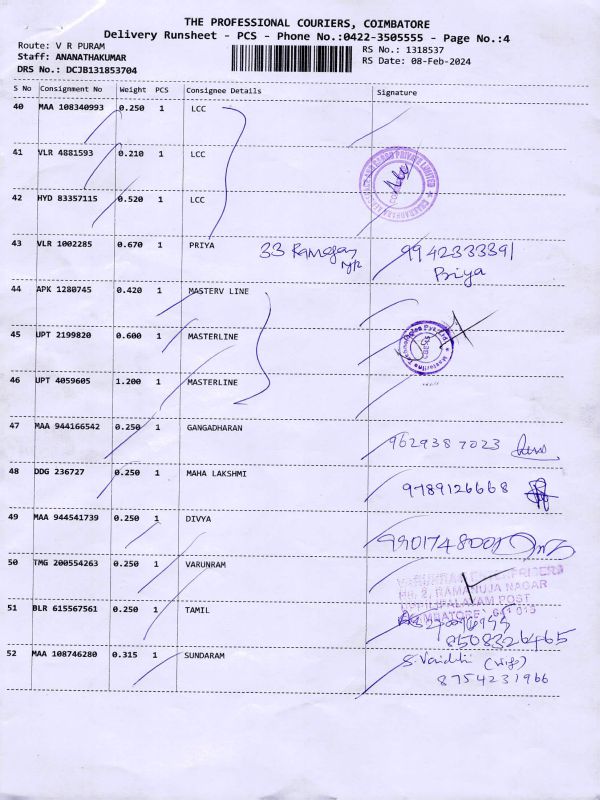 THE PROFESSIONAL COURIERS, COIMBATORE
Delivery Runsheet - PCS - Phone No.:0422-3505555 - Page No.:4
Route: V R PURAM
RS No.: 1318537
Staff: ANANATHAKUMAR
RS Date: 08-Feb-2024
DRS No.: DCJB131853704
S No Consignment No Weight PCS Consignee Details Signature
40 MAA 108340993 0.250 1 LCC
41 VLR 4881593 0.210 1 LCC
42 HYD 83357115 0.520 1 LCC
43 VLR 1002285 0.670 1 PRIYA 33 9942333391
Priya
44 APK 1280745 0.420 1 MASTERV LINE
45 UPT 2199820 0.600 1 MASTERLINE
46 UPT 4059605 1.200 1 MASTERLINE
47 MAA 944166542 0.250 1 GANGADHARAN 9629387023
48 DDG 236727 0.250 1 MAHA LAKSHMI 9789126668
49 MAA 944541739 0.250 1 DIVYA 9901748001
50 TMG 200554263 0.250 1 VARUNRAM
RAMANUJA NAGAR
51 BLR 615567561 0.250 1 TAMIL
COIMBATORE - 641 015
8508326465
52 MAA 108746280 0.315 1 SUNDARAM S. (wife)
8754231966